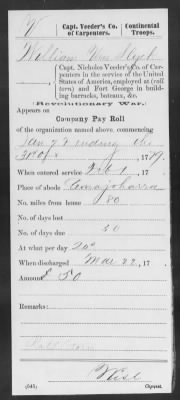 V | Capt. Veeder's Co. of Carpenters. | Continental Troops.
William Van Slyck
Capt. Nicholas Veeder's Co. of Carpenters in the service of the United States of America, employed at (roll torn) and Fort George in building barracks, bateaux, &c.
Revolutionary War.
Appears on
Company Pay Roll
of the organization named above, commencing
Jan 22 ending the
17 79.
When entered service
, 17
Place of abode Canajoharra
No. miles from home 80
No. of days lost
No. of days due 50
At what per day 20s
When discharged Mar 22, 17
Amount £ 50
Remarks:
Roll torn
(545)
Copyist.